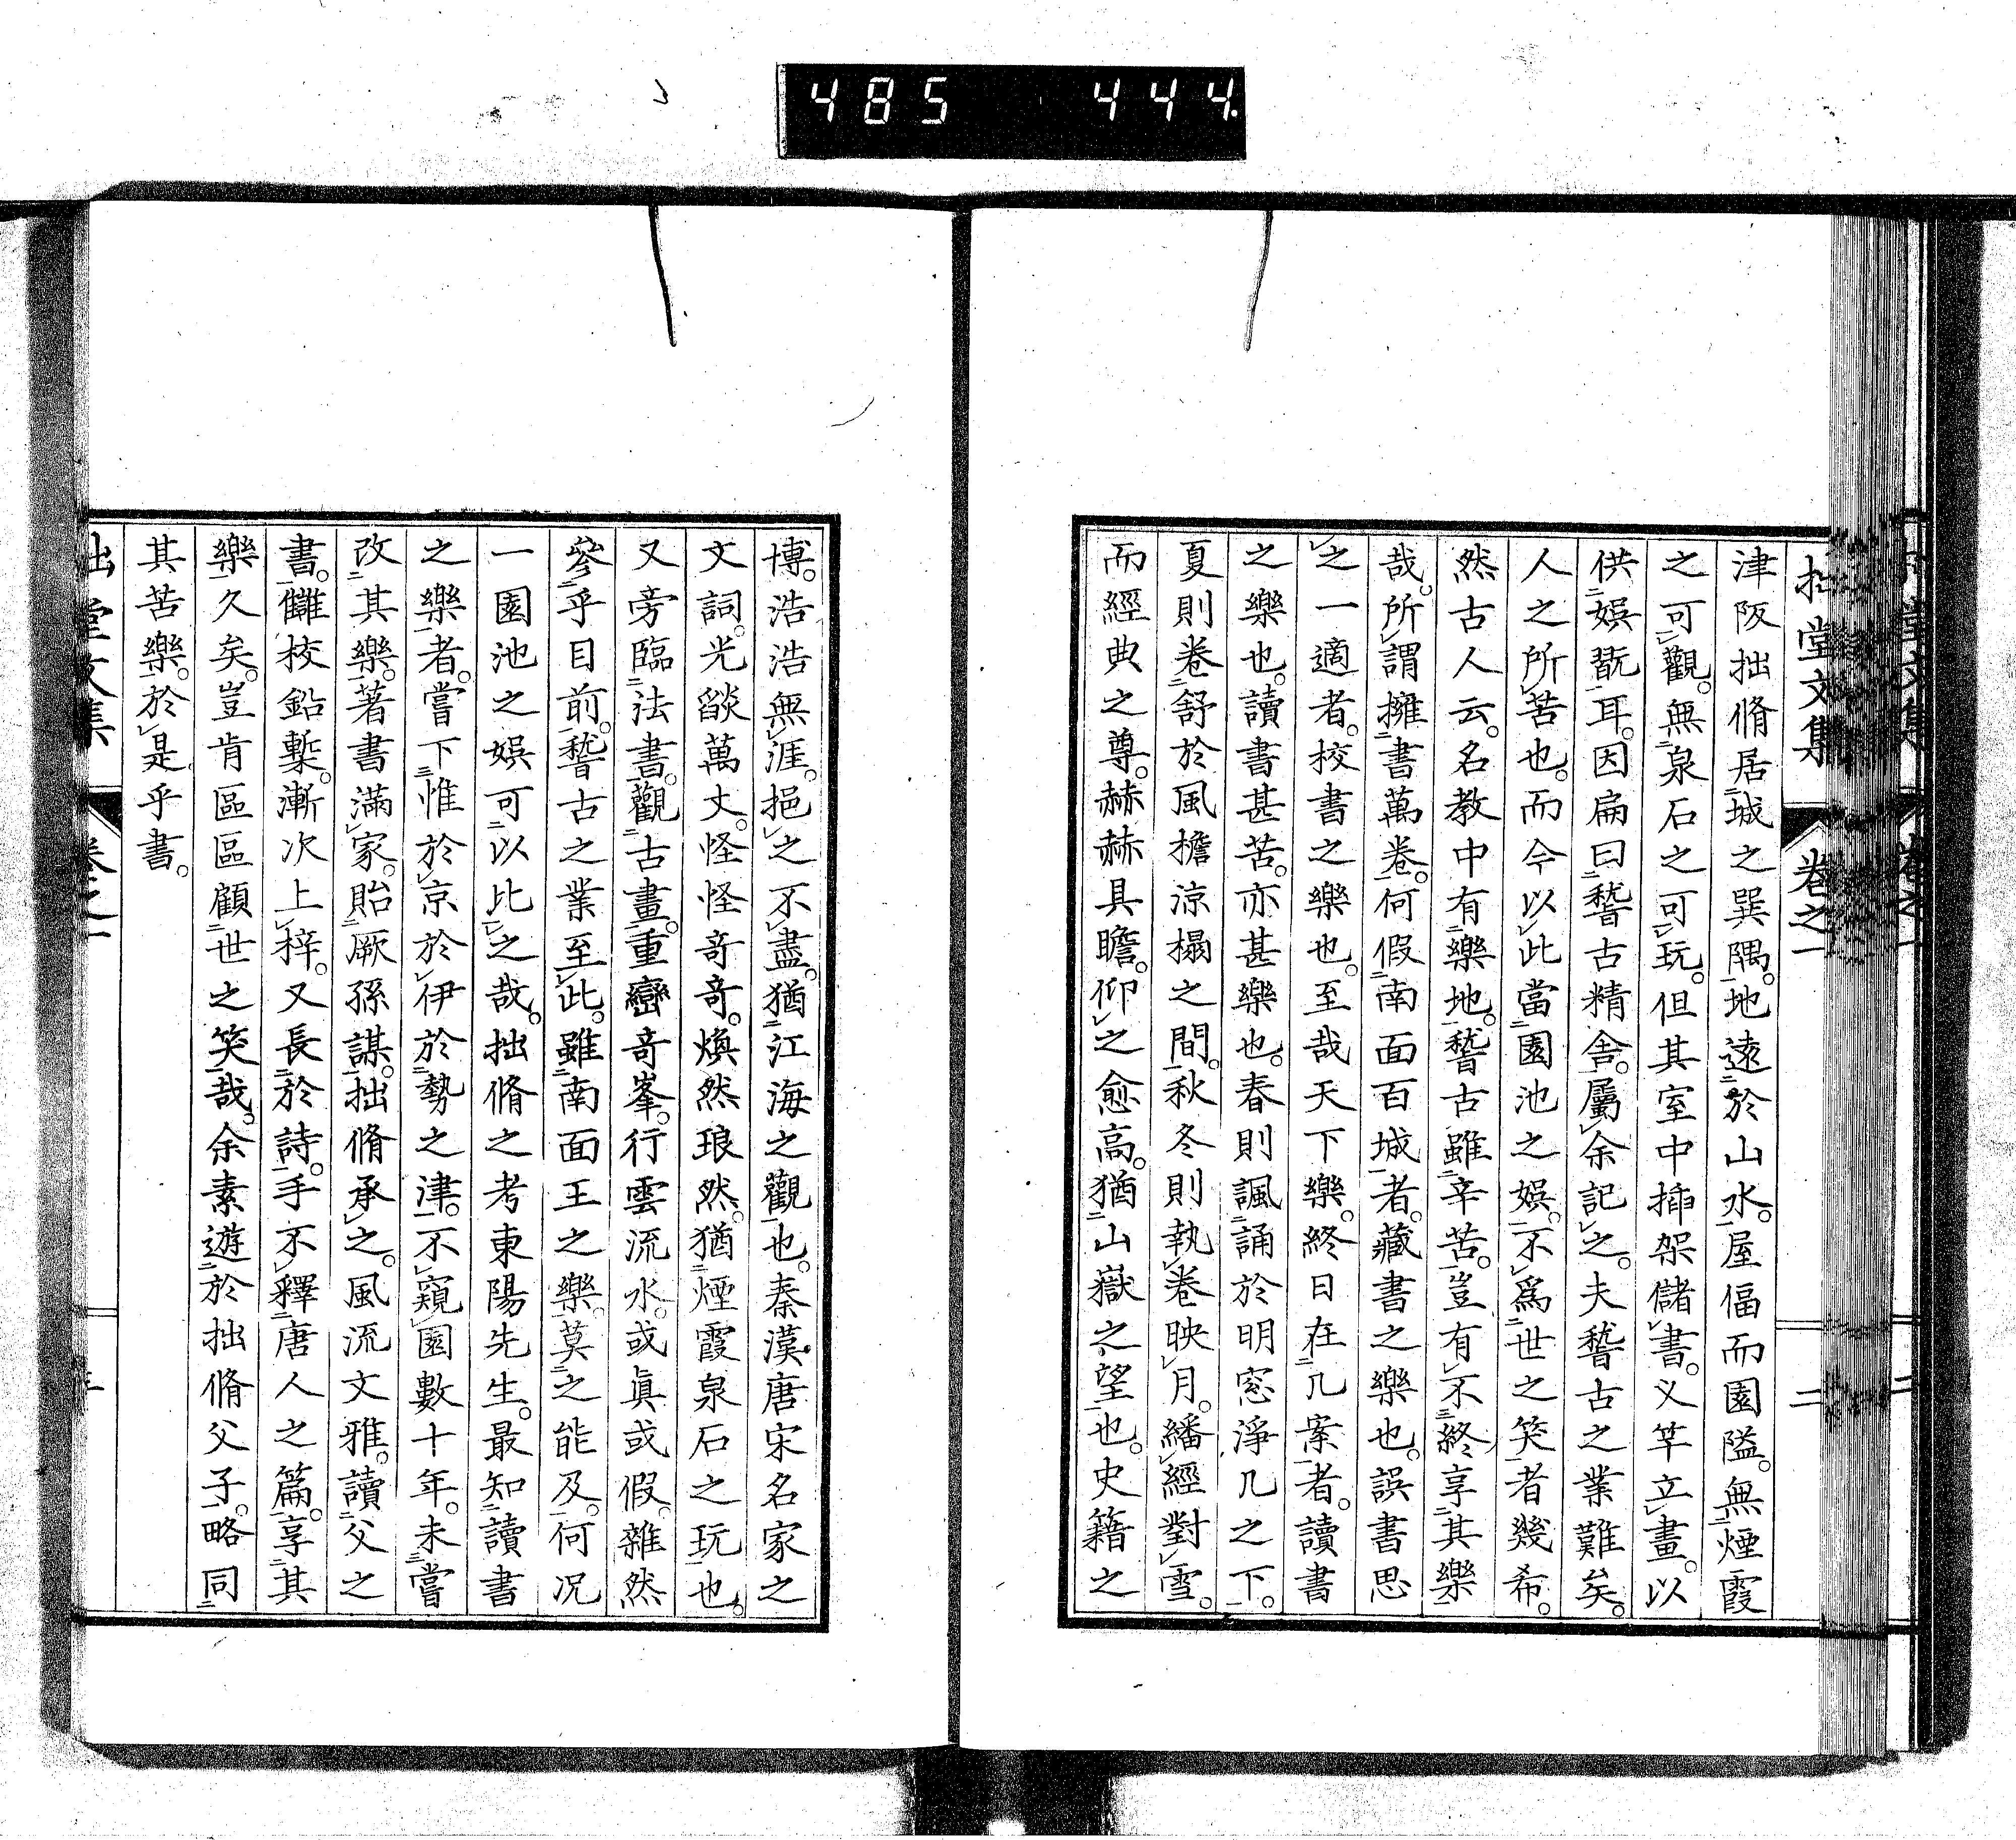 485 444.
拙堂文集 卷之一 二
津阪拙脩居城之巽隅。地遠於山水。屋偪而園隘。無煙霞
之可觀。無泉石之可玩。但其室中揷架儲書。乂竿立畫。以
供娯翫耳。因扁曰稽古精舍。屬余記之。夫稽古之業難矣。
人之所苦也。而今以此當園池之娯。不爲世之笑者幾希。
然古人云。名教中有樂地。稽古雖辛苦。豈有不終享其樂
哉。所謂擁書萬卷。何假南面百城者。藏書之樂也。誤書思
之一適者。校書之樂也。至哉天下樂。終日在几案者。讀書
之樂也。讀書甚苦。亦甚樂也。春則諷誦於明窓淨几之下。
夏則卷舒於風檐涼榻之間。秋冬則執卷映月。繙經對雪。
而經典之尊。赫赫具瞻。仰之愈高。猶山嶽之望也。史籍之
博。浩浩無涯。挹之不盡。猶江海之觀也。秦漢唐宋名家之
文詞。光燄萬丈。怪怪奇奇。煥然琅然。猶煙霞泉石之玩也。
又旁臨法書。觀古畫。重巒奇峯。行雲流水。或眞或假。雜然
參乎目前。稽古之業至此。雖南面王之樂。莫之能及。何况
一園池之娯可以比之哉。拙脩之考東陽先生。最知讀書
之樂者。嘗下惟於京於伊於勢之津。不窺園數十年。未嘗
改其樂。著書滿家。貽厥孫謀。拙脩承之。風流文雅。讀父之
書。讎校鉛槧。漸次上梓。又長於詩。手不釋唐人之篇。享其
樂久矣。豈肯區區顧世之笑哉。余素遊於拙脩父子。略同
其苦樂。於是乎書。
拙堂文集 卷之一